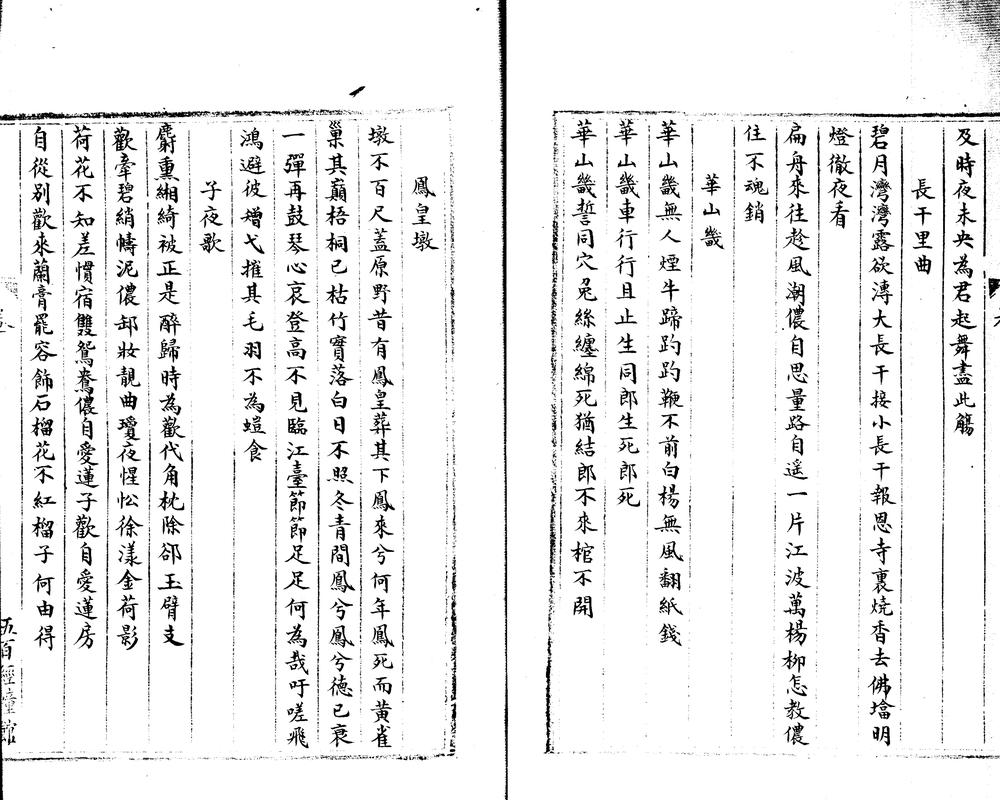 及時夜未央為君起舞盡此觴
長干里曲
碧月灣灣露欲漙大長干接小長干報恩寺裏燒香去佛墖明
燈徹夜看
扁舟來往趁風潮儂自思量路自遥一片江波萬楊柳怎教儂
住不魂銷
華山畿
華山畿無人煙牛蹄趵趵鞭不前白楊無風翻紙錢
華山畿車行行且止生同郎生死郎死
華山畿誓同穴兔絲纏綿死猶結郎不來棺不開
鳳皇墩
墩不百尺蓋原野昔有鳳皇葬其下鳳來兮何年鳳死而黄雀
巢其巔梧桐已枯竹實落白日不照冬青間鳳兮鳳兮德已衰
一彈再鼓琴心哀登高不見臨江臺節節足足何為哉吁嗟飛
鴻避彼矰弋摧其毛羽不為螘食
子夜歌
麝熏緗綺被正是醉歸時為歡代角枕除郤玉臂支
歡牽碧綃幬泥儂卸妝靚曲瓊夜惺忪徐漾金荷影
荷花不知差慣宿雙鴛鴦儂自愛蓮子歡自愛蓮房
自從别歡來蘭膏罷容飾石榴花不紅榴子何由得
五百經幢館